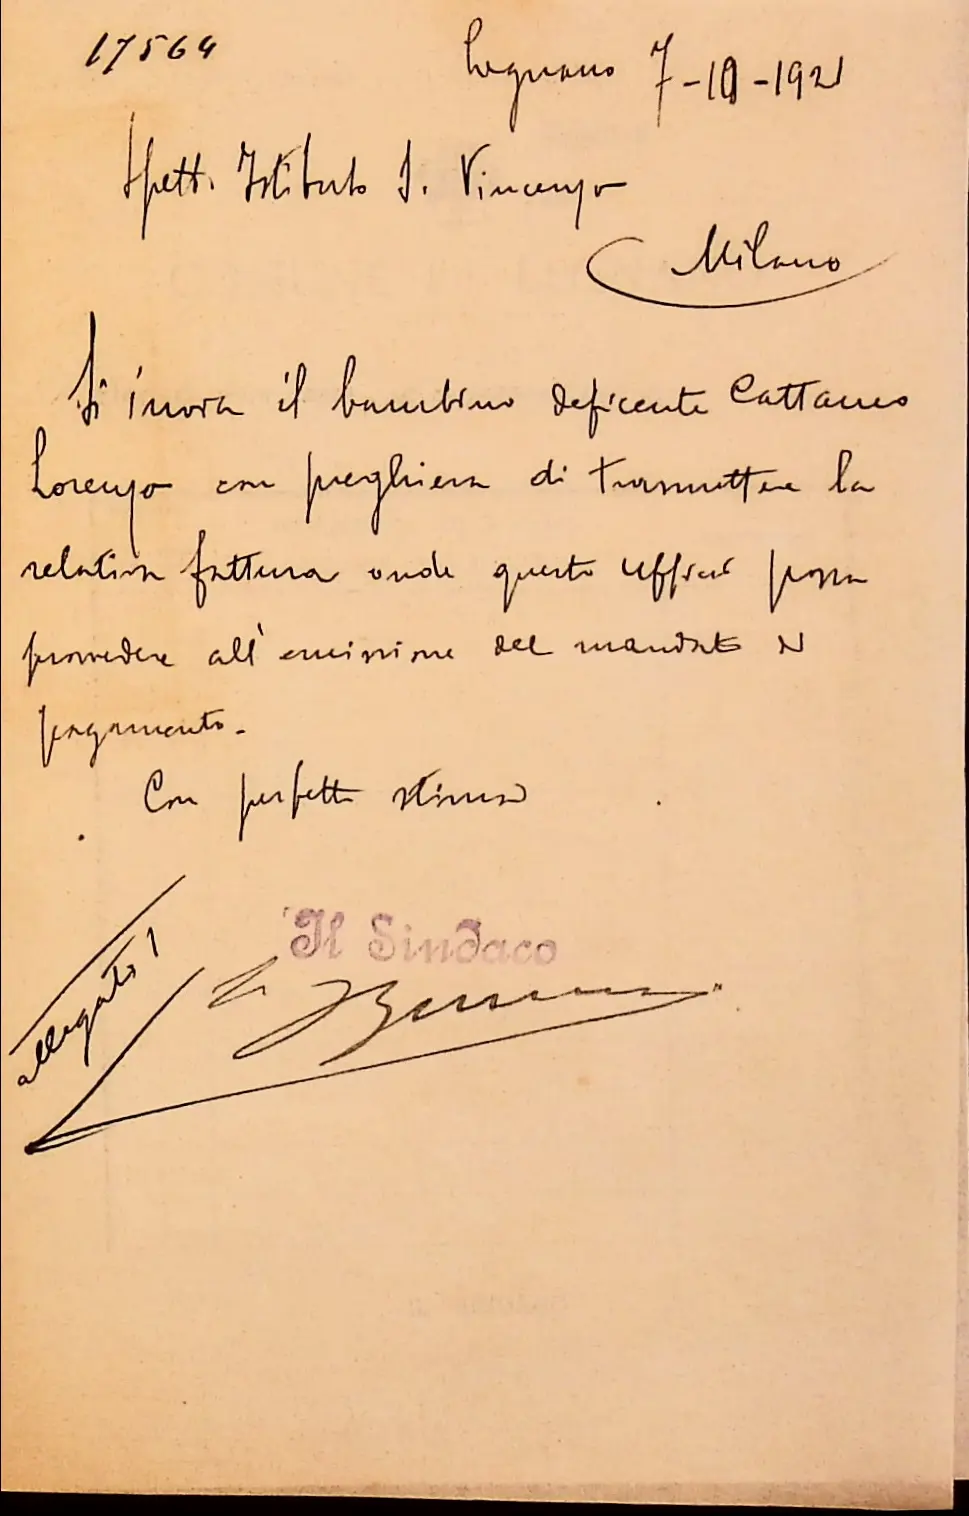 17564
Legnano 7-10-1921
Spett. Istituto S. Vincenzo
Milano
Si invia il bambino deficente Cattaneo
Lorenzo con preghiera di trasmettere la
relativa fattura onde questo Ufficio possa
provvedere all'emissione del mandato di
pagamento.
Con perfetta stima
allegato 1
Il Sindaco